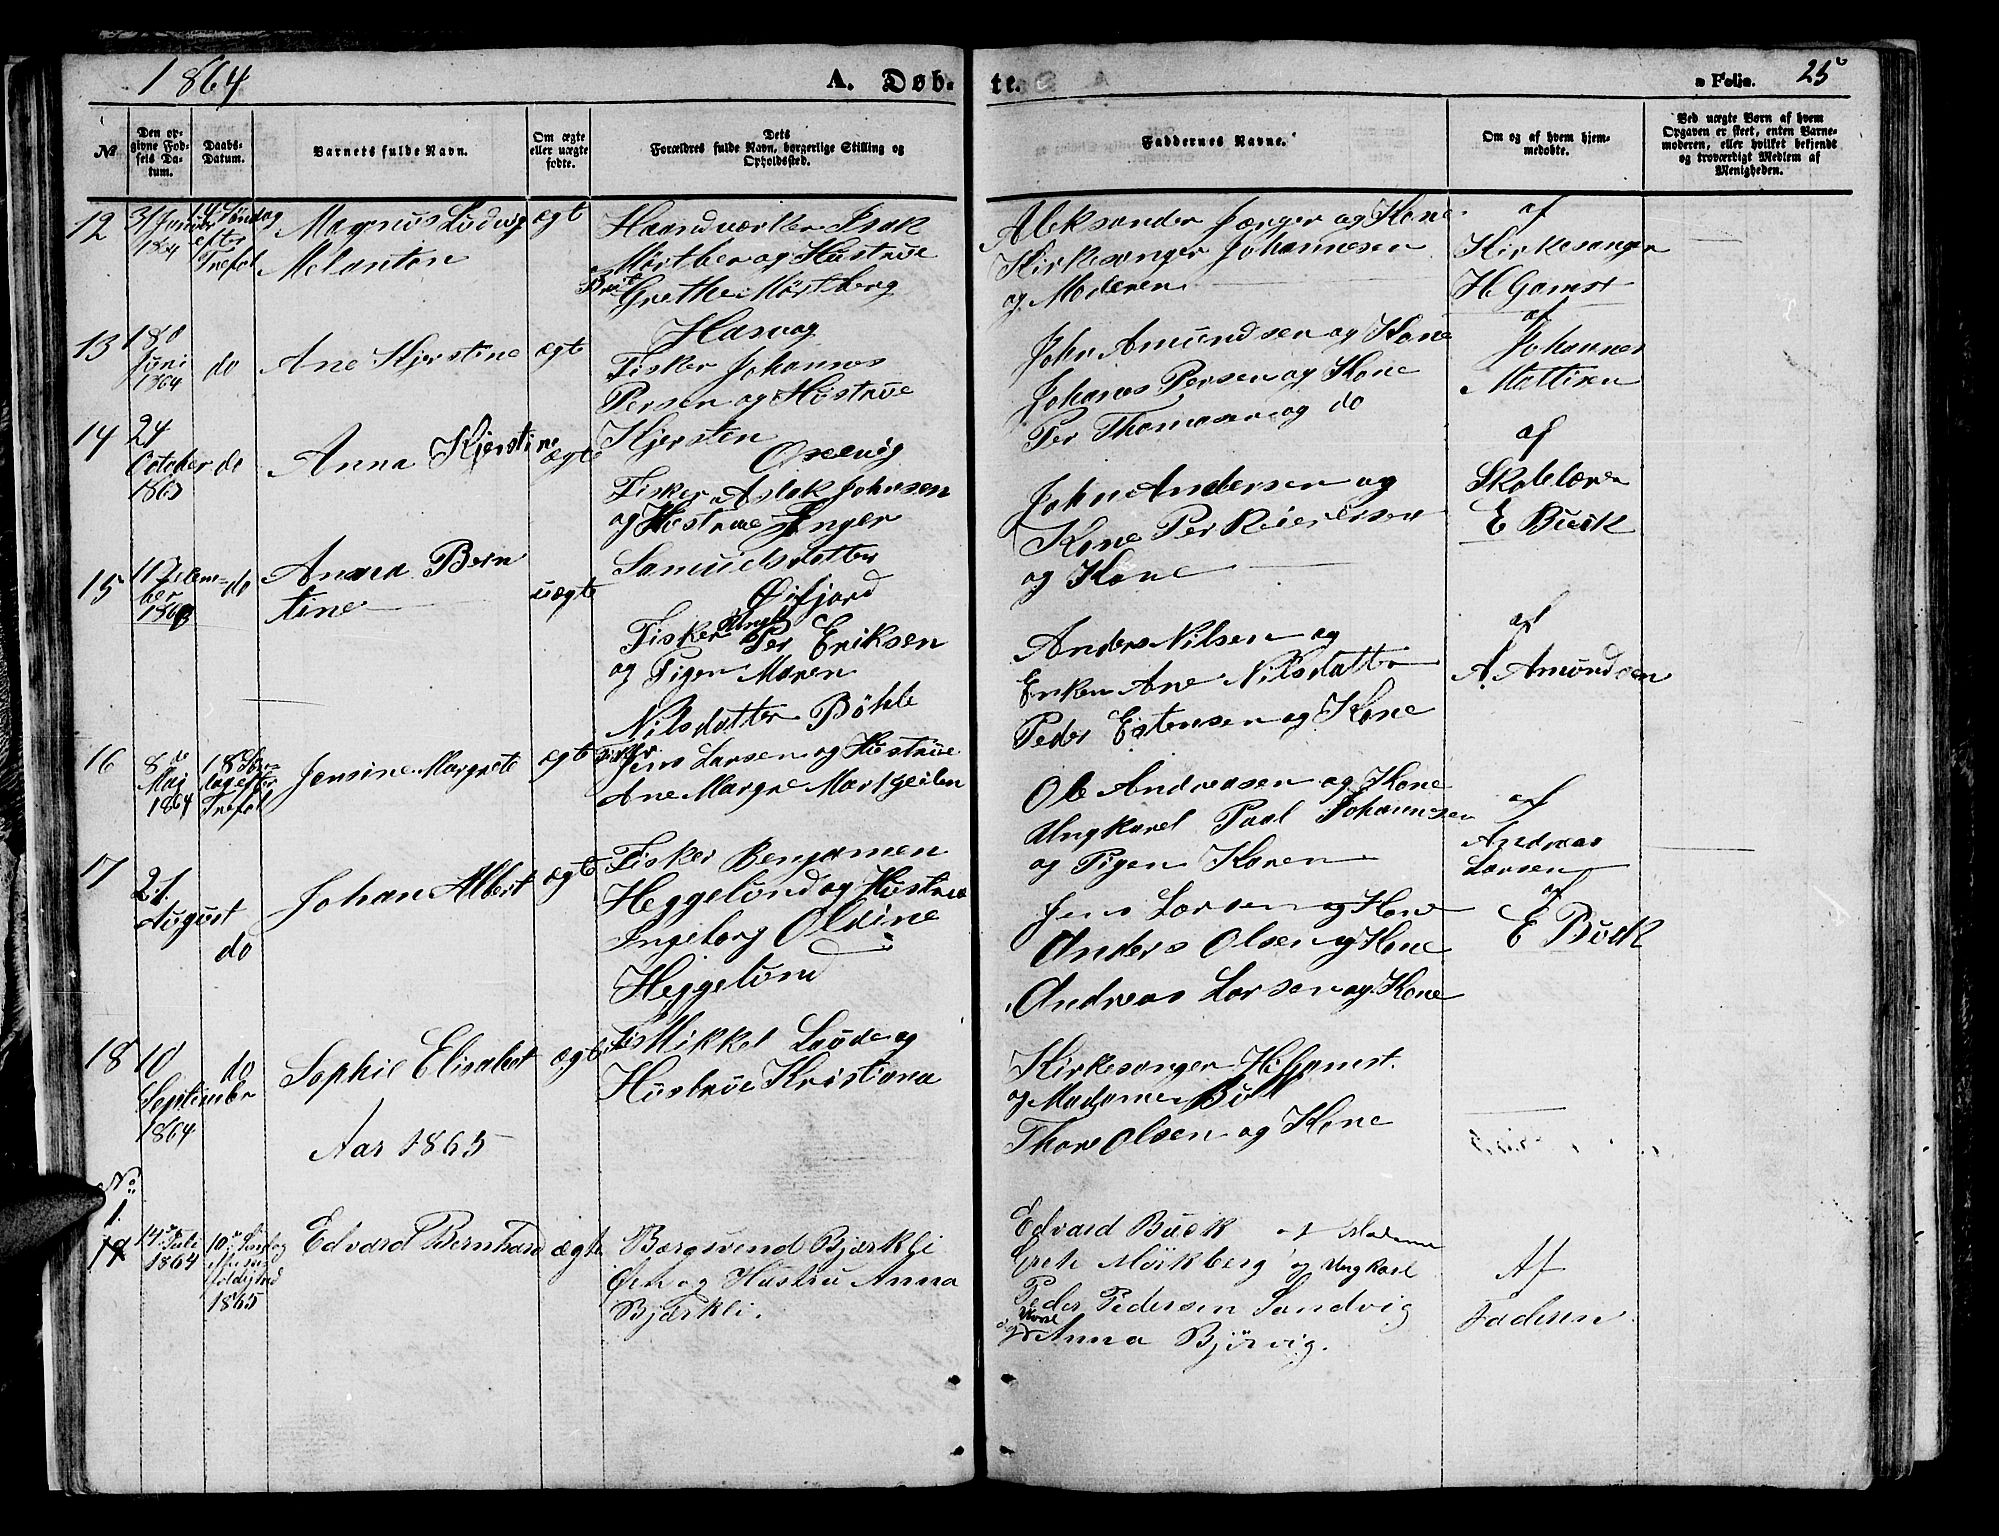 1864
A. Døb-
te.
Folio. 25
№
Den op-
givne Fød-
sels Da-
tum.
Daabs-
Datum.
Barnets fulde Navn.
Om ægte
eller uægte
fødte.
Dets
Forældres fulde Navn, borgerlige Stilling og
Opholdssted.
Faddernes Navne.
Om og af hvem hjem-
medøbte.
Ved uægte Børn af hvem
Opgaven er skeet, enten Varne-
moderen, eller hvilket bekjendt
og troværdigt Medlem af
Menigheden.
12
1864
14 Søndag
efter
Trefol
Magnus Ludvig
Melanton
ægt
Haandværker Isak
og Hustrue
Grethe
Aleksander Jæger og Kone
Kirkesanger Johannesen
og Moderen
af
Kirkesanger
H Gamst
13
Juni
1864
do
Ane Kjerstine
ægt
Hasvag
Fisker Johannes
Persen og Hustrue
Kjersten
John Amundsen og Kone
Johanes Persen og Kone
Per Thomasen og do
af
Johannes
Mattisen
14
24
October
1863
do
Anna Kjerstine
ægt
Fisker Aslak Johnsen
og Hustrue Inger
Samuelsdatter
John Andersen og
Kone Per Reiersen
og Kone
af
Skolelærer
E Buck
15
do
Anna Bern
tine
uægte
Øifjord
Fisker Per Eriksen
og Pigen Maren
Nilsdatter Böhle
Anders Nilsen og
Enken Ane Nilsdatter
Peder Estensen og Kone
af
A. Amundsen
16
8de
Maj
1864
Trefol
Jensine Margrete
ægt
Fisker
Jens Larsen og Hustrue
Ane Margre
Ole Andreasen og Kone
Ungkarel Paal Johannesen
og Pigen Karen
af
Andreas
Larsen
17
21
August
do
Johan Albert
ægt
Fisker Benjamen
Heggelund og Hustrue
Ingeborg Oldine
Heggelund
Jens Larsen og Kone
Anders Olsen og Kone
Andreas Larsen og Kone
af
E Buck
18
10
September
1864
do
Sophie Elisabet
ægte
Mikkel
Hustrue Kristiana
Kirkesanger H. Gamst.
og Madame
Thore Olsen og Kone
Aar 1865
No.
1.
19
14de Juli
1864
1865
Edvard Bernhard
ægte
Bærgsvend Bjærkli
og Hustru Anna
Bjærkli.
Edvard Buck
og Ungkarl
Peder Pedersen Sandvig
og
Anna Bjørvig.
Af
Faderen